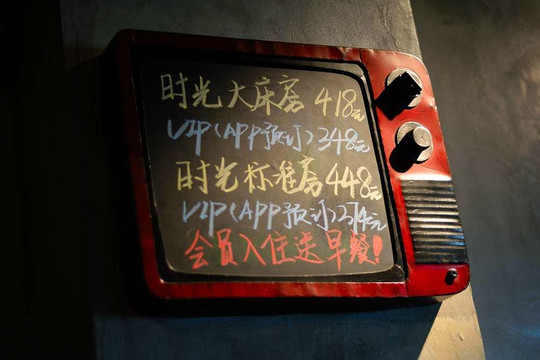 时光大床房 418元
VIP(APP预订)348元
时光标准房 448元
VIP(APP预订)374元
会员入住送早餐!